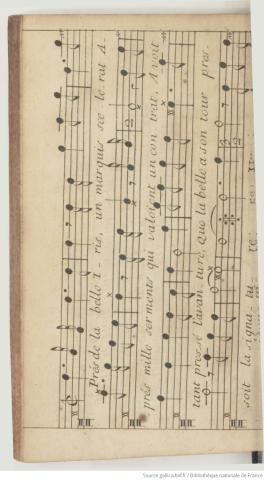 Prés de la belle I - ris, un marquis sce le rat A -
prés mille serments qui valoient un con trat, A voit
tant pressé l'avan ture, Que la belle a son tour pres -
soit la signa tu re
Source gallica.bnf.fr / Bibliothèque nationale de France